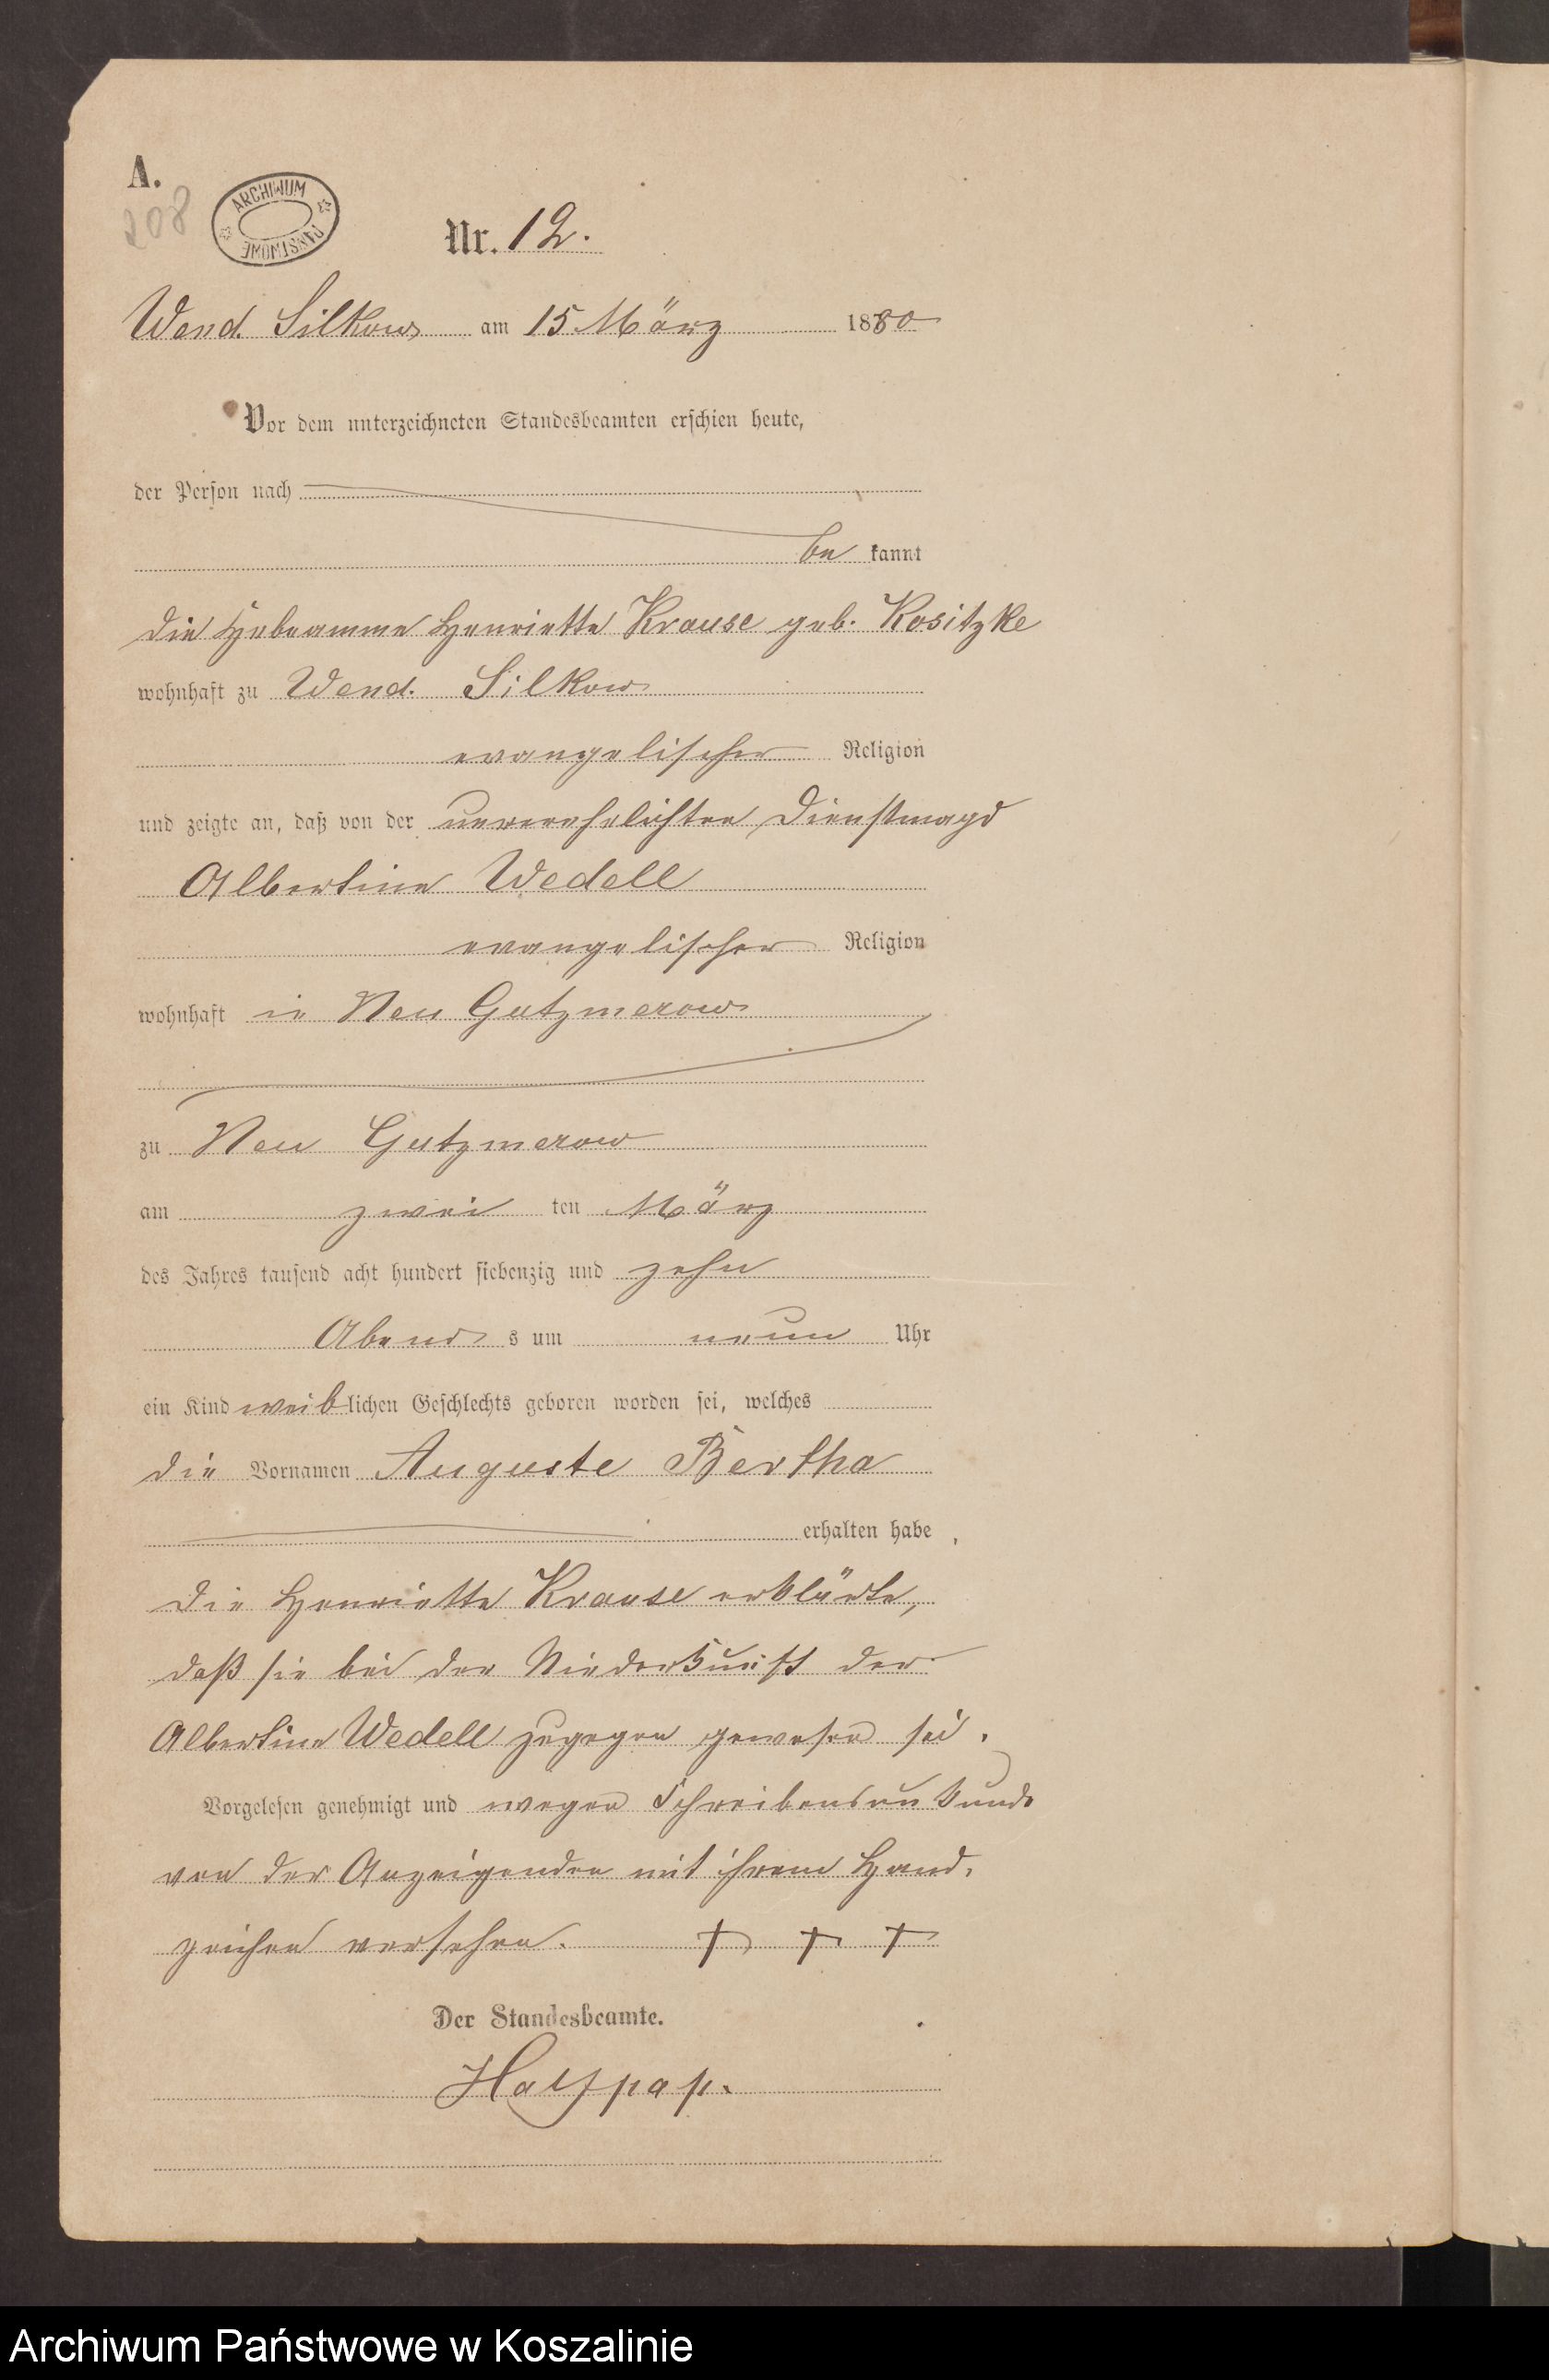 A.
208
ARCHIWUM PAŃSTWOWE
Nr. 12.
Wend. Silkow am 15 März 1880
Vor dem unterzeichneten Standesbeamten erschien heute,
der Person nach
be kannt
die Hebeamme Henriette Krause geb. Kositzke
wohnhaft zu Wend. Silkow
evangelischer Religion
und zeigte an, daß von der unverehelichten Dienstmagd
Albertine Wedell
evangelischer Religion
wohnhaft in Neu Gutzmerow
zu Neu Gutzmerow
am zwei ten März
des Jahres tausend acht hundert siebenzig und zehn
Abend s um neun Uhr
ein Kind weiblichen Geschlechts geboren worden sei, welches
die Vornamen Auguste Bertha
erhalten habe,
Die Henriette Krause erklärte,
daß sie bei der Niederkunft der
Albertine Wedell zugegen gewesen sei.
Vorgelesen genehmigt und wegen Schreibensunkunde
von der Anzeigenden mit ihrem Hand,
zeichen versehen. † † †
Der Standesbeamte.
Archiwum Państwowe w Koszalinie